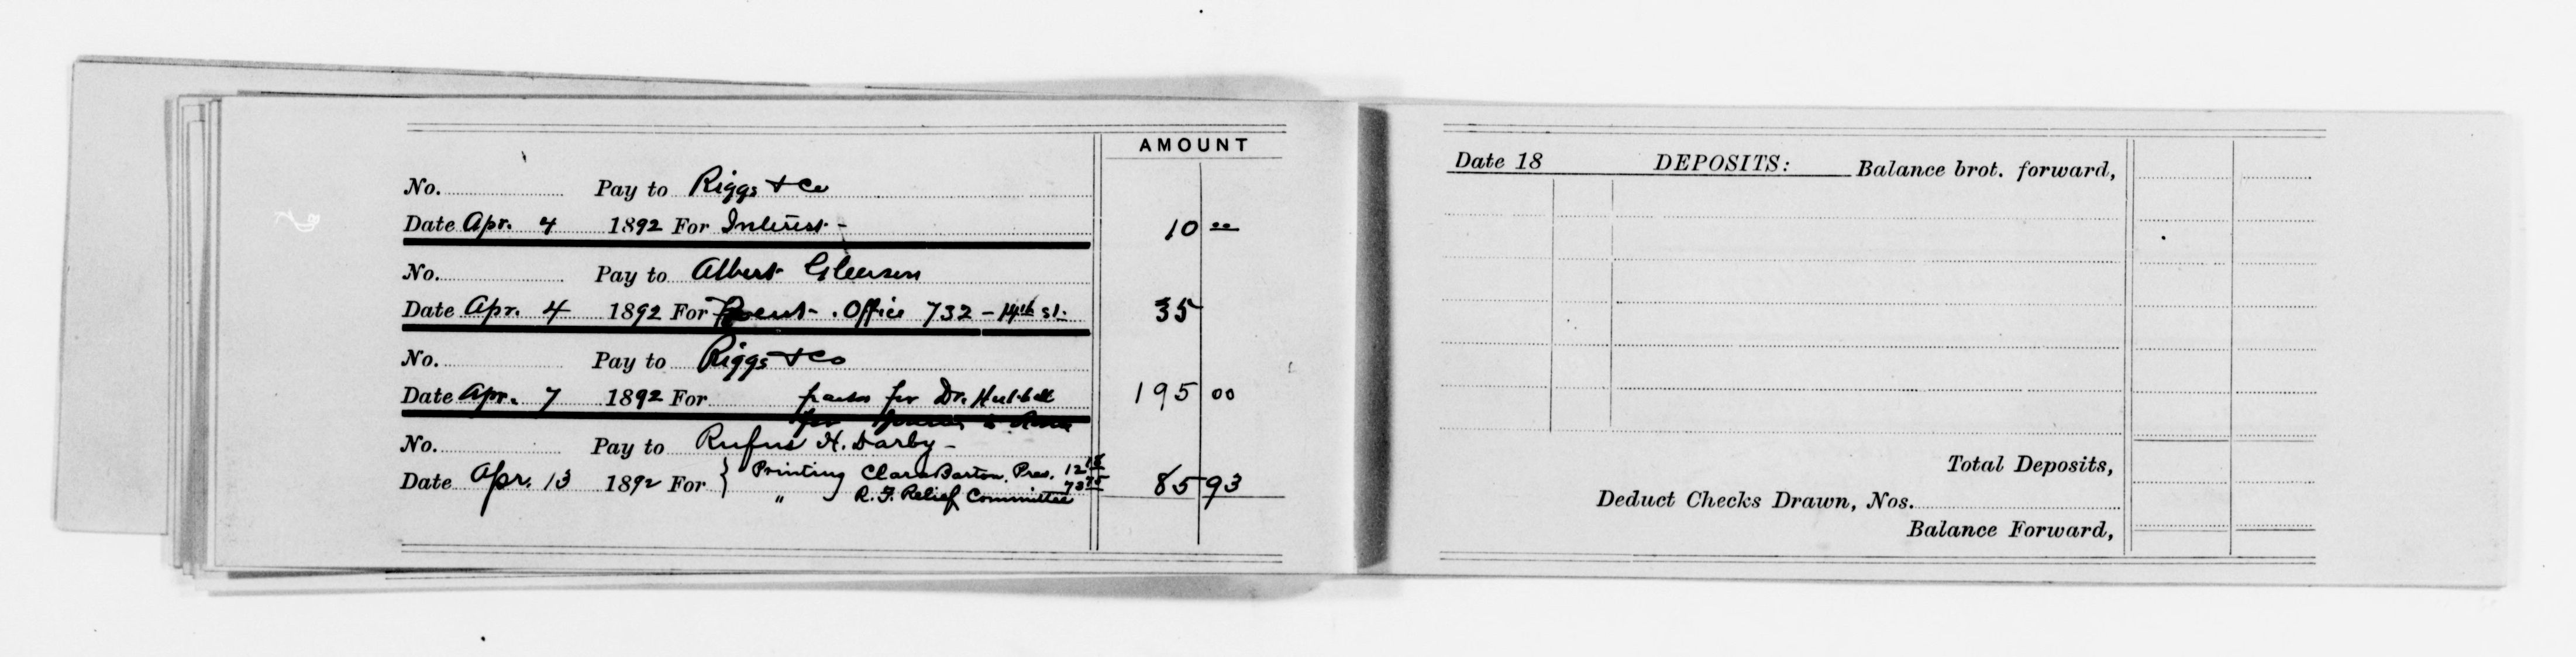 AMOUNT
No. Pay to Riggs & Co
Date Apr. 4 1892 For Interest - 10 00
No. Pay to Albert Gleeson
Date Apr. 4 1892 For Rent - Office 732 - 14th St. 35
No. Pay to Riggs & Co
Date Apr. 7 1892 For for Dr. Hubbell 195 00
No. Pay to Rufus H. Darby -
Date Apr. 13 1892 For { Printing Clara Barton, Pres. 12 18
" R. F. Relief Committee 73 75 85 93
Date 18 DEPOSITS: Balance brot. forward,
Total Deposits,
Deduct Checks Drawn, Nos.
Balance Forward,